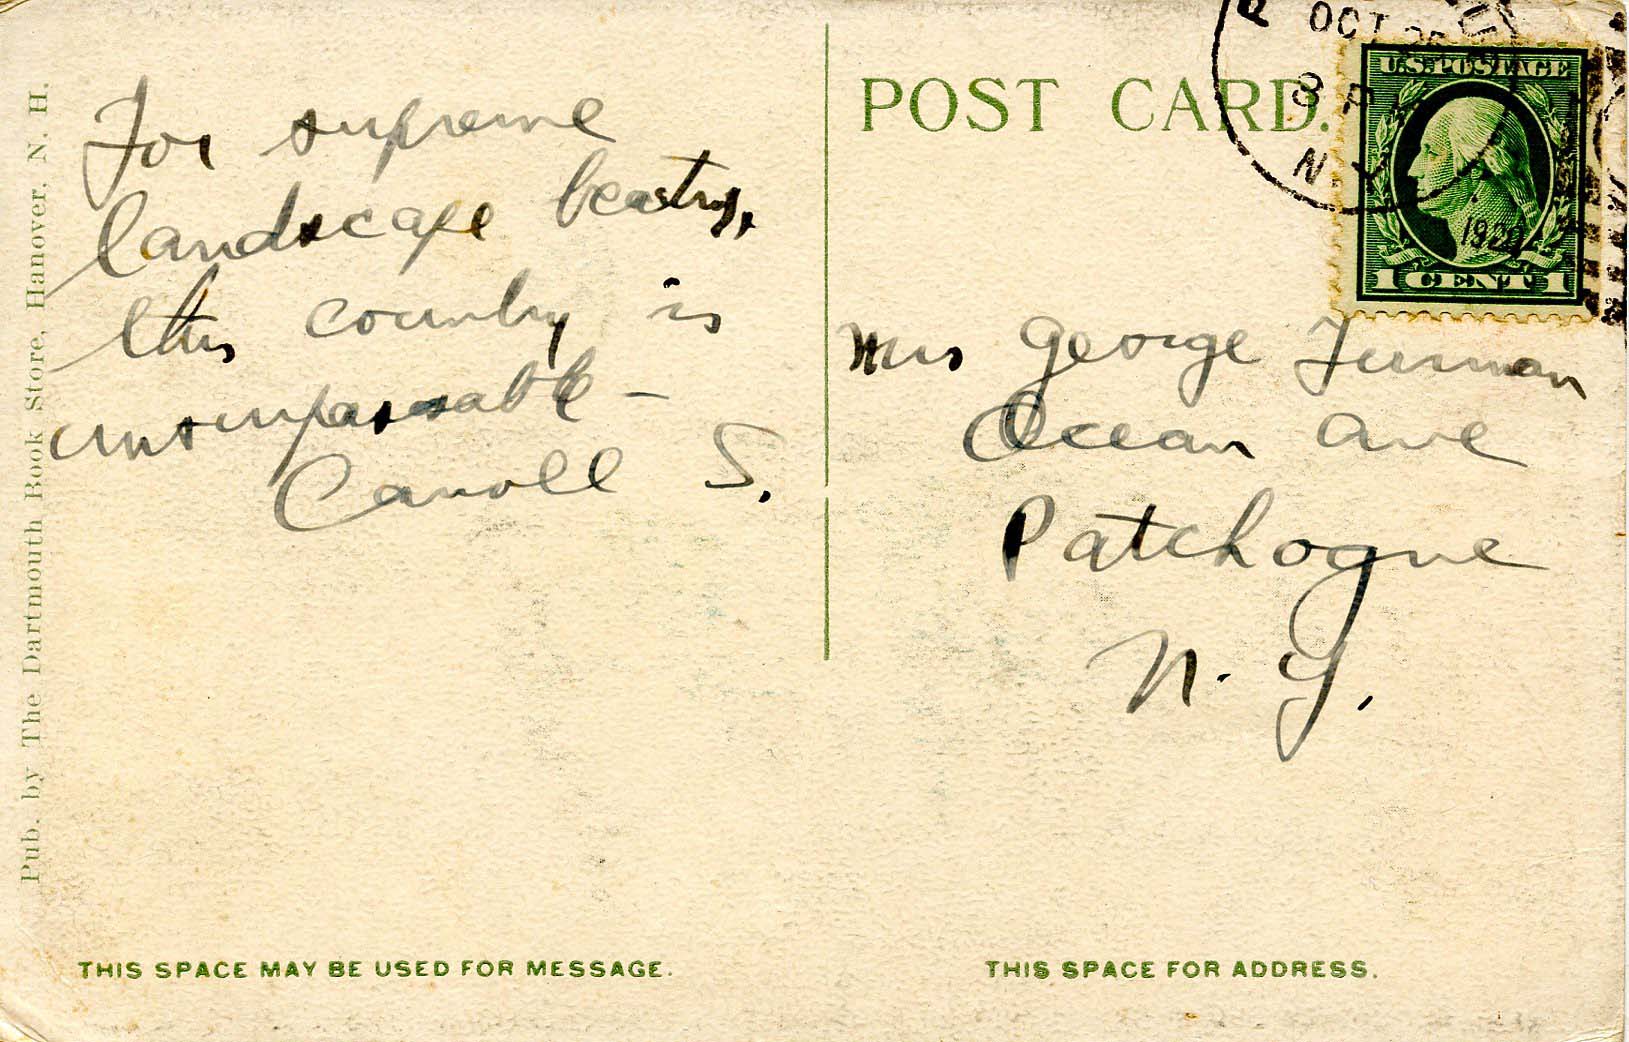 Pub. by The Dartmouth Book Store, Hanover, N. H.
For supreme
landscape beauty,
this country is
unsurpassable –
Carroll S.
THIS SPACE MAY BE USED FOR MESSAGE.
POST CARD.
OCT
8 PM
N.
1920
U.S. POSTAGE
1 CENT 1
Mrs George Furman
Ocean Ave
Patchogue
N. Y.
THIS SPACE FOR ADDRESS.